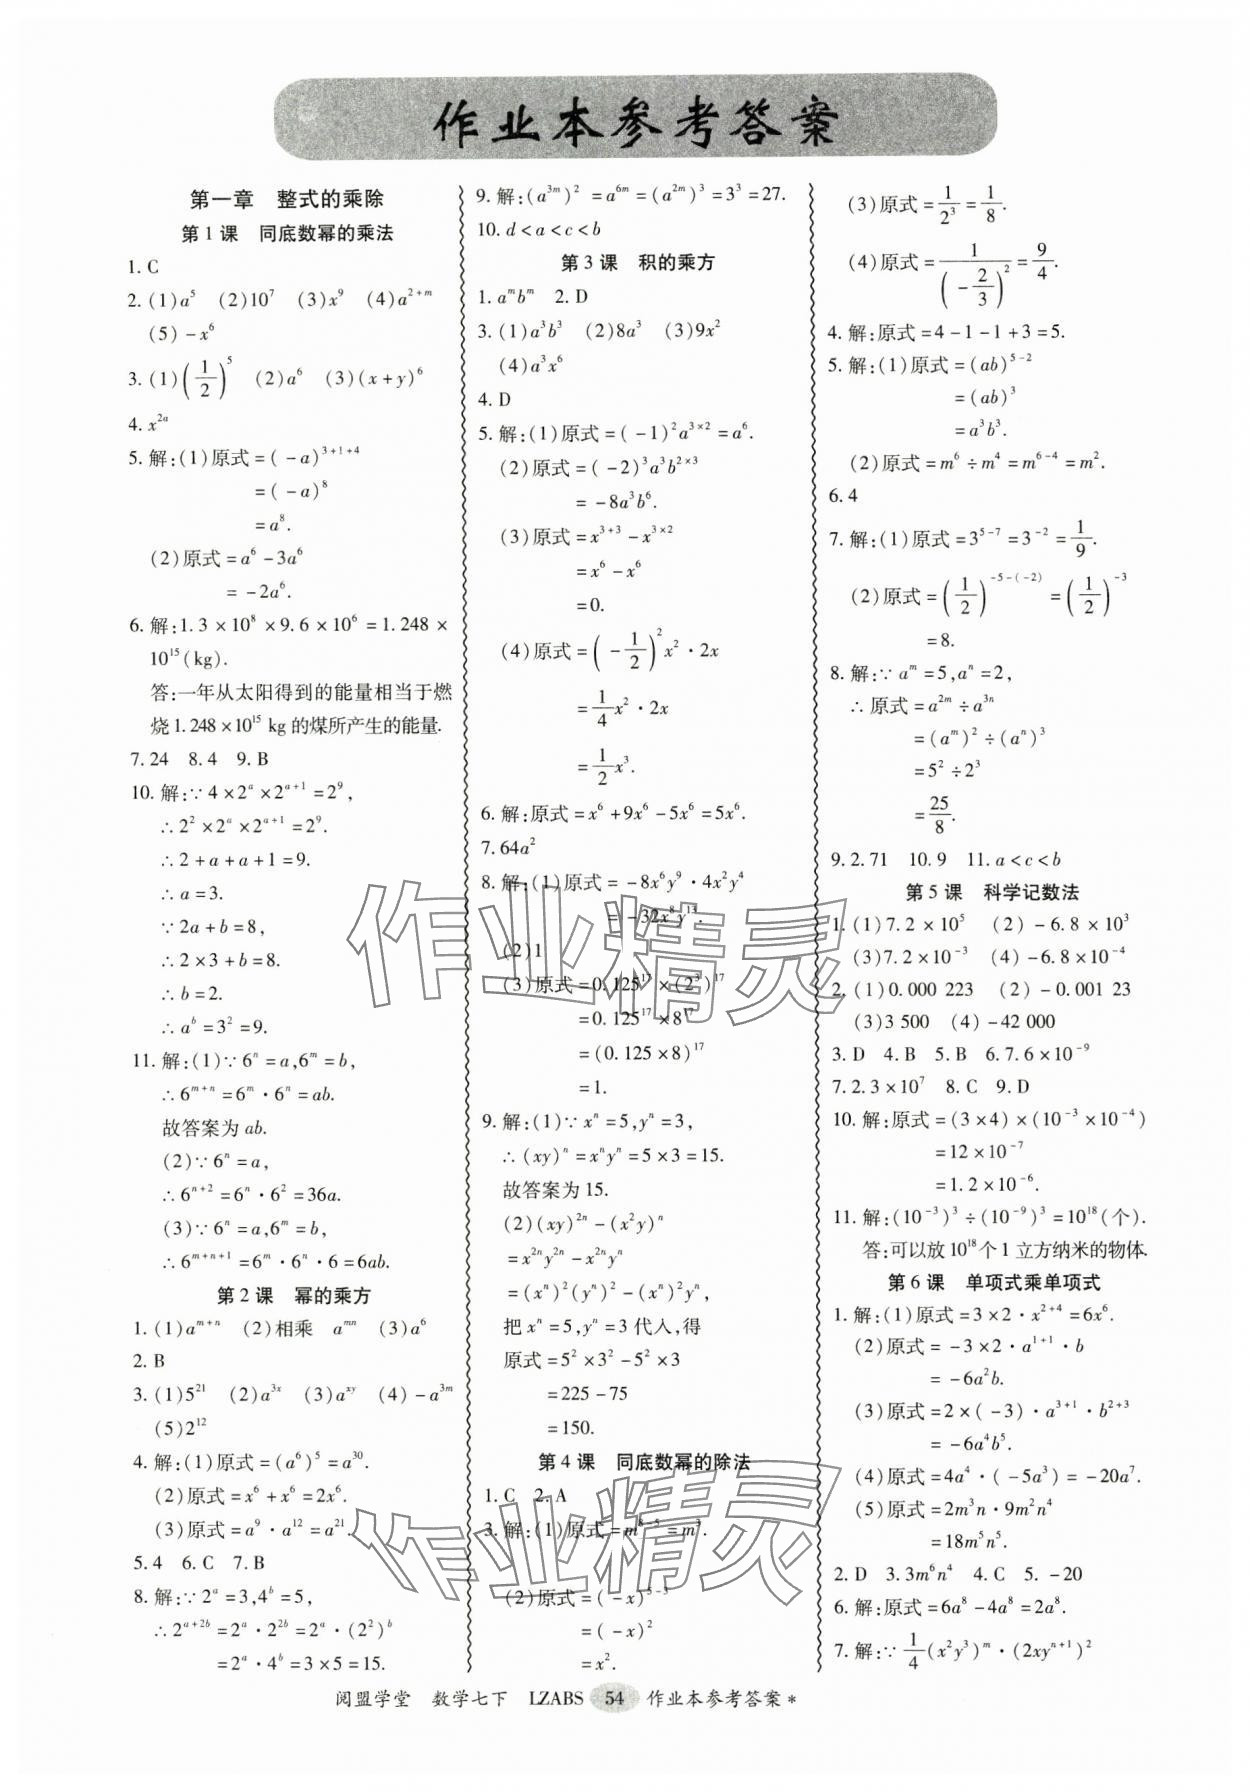 作业本参考答案
第一章 整式的乘除
第1课 同底数幂的乘法
1. C
2. (1)a⁵ (2)10⁷ (3)x⁹ (4)a²⁺ᵐ
(5)－x⁶
3. (1)(1/2)⁵ (2)a⁶ (3)(x+y)⁶
4. x²ᵃ
5. 解:(1)原式=(－a)³⁺¹⁺⁴
=(－a)⁸
=a⁸.
(2)原式=a⁶－3a⁶
=－2a⁶.
6. 解:1.3×10⁸×9.6×10⁶=1.248×
10¹⁵(kg).
答:一年从太阳得到的能量相当于燃
烧1.248×10¹⁵ kg的煤所产生的能量.
7. 24 8. 4 9. B
10. 解:∵4×2ᵃ×2ᵃ⁺¹=2⁹,
∴2²×2ᵃ×2ᵃ⁺¹=2⁹.
∴2+a+a+1=9.
∴a=3.
∵2a+b=8,
∴2×3+b=8.
∴b=2.
∴aᵇ=3²=9.
11. 解:(1)∵6ⁿ=a,6ᵐ=b,
∴6ᵐ⁺ⁿ=6ᵐ·6ⁿ=ab.
故答案为ab.
(2)∵6ⁿ=a,
∴6ⁿ⁺²=6ⁿ·6²=36a.
(3)∵6ⁿ=a,6ᵐ=b,
∴6ᵐ⁺ⁿ⁺¹=6ᵐ·6ⁿ·6=6ab.
第2课 幂的乘方
1. (1)aᵐ⁺ⁿ (2)相乘 aᵐⁿ (3)a⁶
2. B
3. (1)5²¹ (2)a³ˣ (3)a^(xy) (4)－a³ᵐ
(5)2¹²
4. 解:(1)原式=(a⁶)⁵=a³⁰.
(2)原式=x⁶+x⁶=2x⁶.
(3)原式=a⁹·a¹²=a²¹.
5. 4 6. C 7. B
8. 解:∵2ᵃ=3,4ᵇ=5,
∴2ᵃ⁺²ᵇ=2ᵃ·2²ᵇ=2ᵃ·(2²)ᵇ
=2ᵃ·4ᵇ=3×5=15.
9. 解:(a³ᵐ)²=a⁶ᵐ=(a²ᵐ)³=3³=27.
10. d<a<c<b
第3课 积的乘方
1. aᵐbᵐ 2. D
3. (1)a³b³ (2)8a³ (3)9x²
(4)a³x⁶
4. D
5. 解:(1)原式=(－1)²a³ˣ²=a⁶.
(2)原式=(－2)³a³b²ˣ³
=－8a³b⁶.
(3)原式=x³⁺³－x³ˣ²
=x⁶－x⁶
=0.
(4)原式=(－1/2)²x²·2x
=1/4x²·2x
=1/2x³.
6. 解:原式=x⁶+9x⁶－5x⁶=5x⁶.
7. 64a²
8. 解:(1)原式=－8x⁶y⁹·4x²y⁴
=－32x⁸y¹³.
(2)1
(3)原式=0.125¹⁷×(2³)¹⁷
=0.125¹⁷×8¹⁷
=(0.125×8)¹⁷
=1.
9. 解:(1)∵xⁿ=5,yⁿ=3,
∴(xy)ⁿ=xⁿyⁿ=5×3=15.
故答案为15.
(2)(xy)²ⁿ－(x²y)ⁿ
=x²ⁿy²ⁿ－x²ⁿyⁿ
=(xⁿ)²(yⁿ)²－(xⁿ)²yⁿ,
把xⁿ=5,yⁿ=3代入,得
原式=5²×3²－5²×3
=225－75
=150.
第4课 同底数幂的除法
1. C 2. A
3. 解:(1)原式=m⁸⁻⁵=m³.
(2)原式=(－x)⁵⁻³
=(－x)²
=x².
(3)原式=1/2³=1/8.
(4)原式=1/(－2/3)²=9/4.
4. 解:原式=4－1－1+3=5.
5. 解:(1)原式=(ab)⁵⁻²
=(ab)³
=a³b³.
(2)原式=m⁶÷m⁴=m⁶⁻⁴=m².
6. 4
7. 解:(1)原式=3⁵⁻⁷=3⁻²=1/9.
(2)原式=(1/2)⁻⁵⁻⁽⁻²⁾=(1/2)⁻³
=8.
8. 解:∵aᵐ=5,aⁿ=2,
∴原式=a²ᵐ÷a³ⁿ
=(aᵐ)²÷(aⁿ)³
=5²÷2³
=25/8.
9. 2.71 10. 9 11. a<c<b
第5课 科学记数法
1. (1)7.2×10⁵ (2)－6.8×10³
(3)7.2×10⁻³ (4)－6.8×10⁻⁴
2. (1)0.000 223 (2)－0.001 23
(3)3 500 (4)－42 000
3. D 4. B 5. B 6. 7.6×10⁻⁹
7. 2.3×10⁷ 8. C 9. D
10. 解:原式=(3×4)×(10⁻³×10⁻⁴)
=12×10⁻⁷
=1.2×10⁻⁶.
11. 解:(10⁻³)³÷(10⁻⁹)³=10¹⁸(个).
答:可以放10¹⁸个1立方纳米的物体.
第6课 单项式乘单项式
1. 解:(1)原式=3×2·x²⁺⁴=6x⁶.
(2)原式=－3×2·a¹⁺¹·b
=－6a²b.
(3)原式=2×(－3)·a³⁺¹·b²⁺³
=－6a⁴b⁵.
(4)原式=4a⁴·(－5a³)=－20a⁷.
(5)原式=2m³n·9m²n⁴
=18m⁵n⁵.
2. D 3. 3m⁶n⁴ 4. C 5. －20
6. 解:原式=6a⁸－4a⁸=2a⁸.
7. 解:∵1/4(x²y³)ᵐ·(2xyⁿ⁺¹)²
阅盟学堂 数学七下 LZABS 54 作业本参考答案*
作业精灵
作业精灵